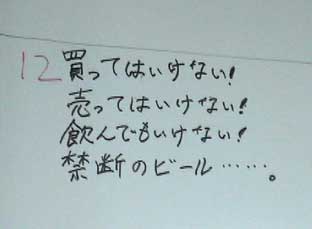 12 買ってはいけない!
売ってはいけない!
飲んでもいけない!
禁断のビール……。